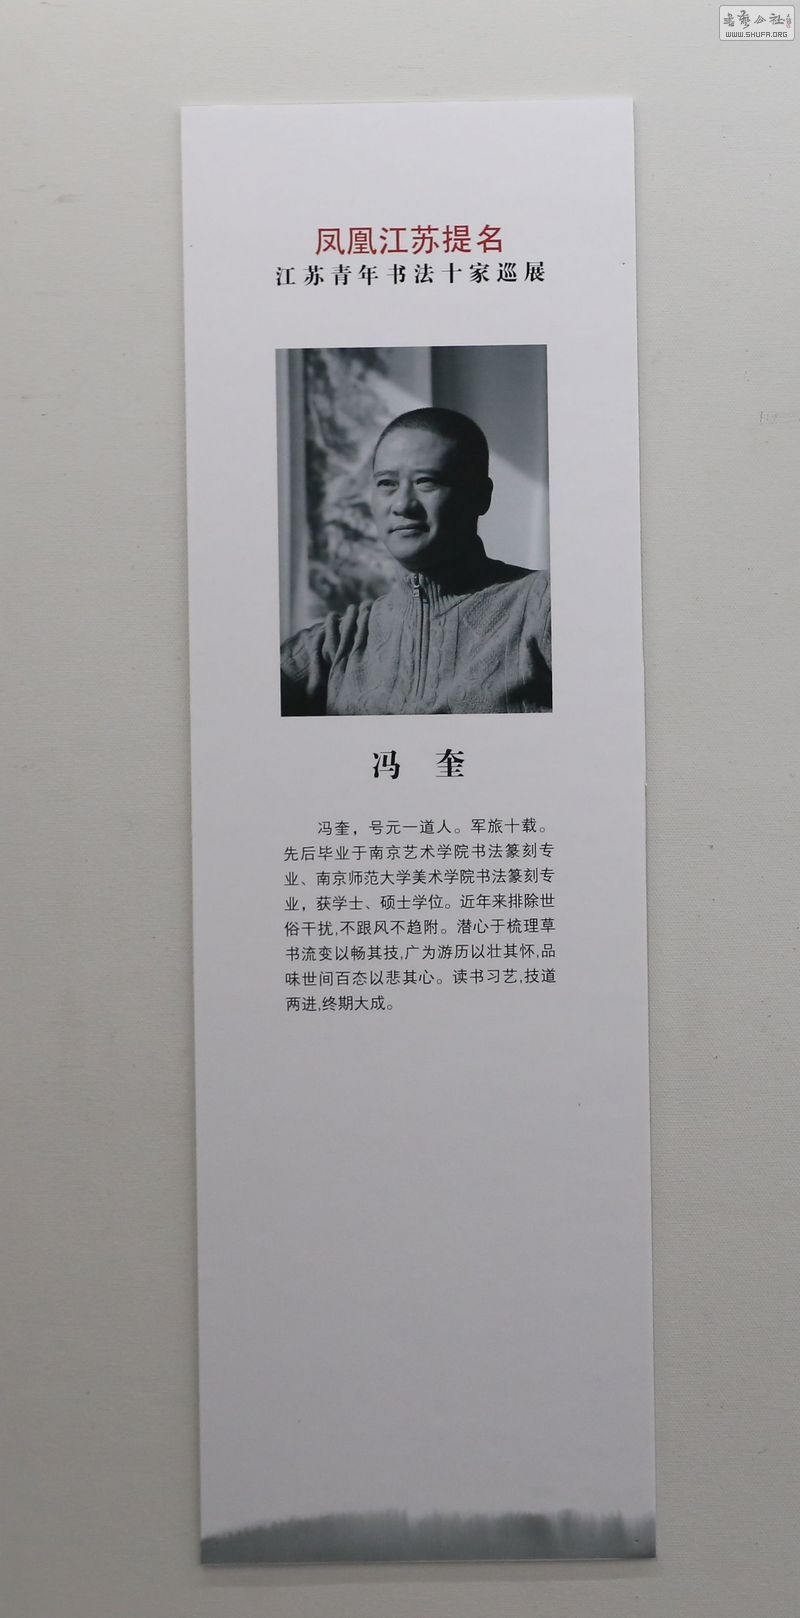 书艺公社
WWW.SHUFA.ORG
凤凰江苏提名
江苏青年书法十家巡展
冯 奎
冯奎，号元一道人。军旅十载。
先后毕业于南京艺术学院书法篆刻专
业、南京师范大学美术学院书法篆刻专
业，获学士、硕士学位。近年来排除世
俗干扰,不跟风不趋附。潜心于梳理草
书流变以畅其技,广为游历以壮其怀,品
味世间百态以悲其心。读书习艺,技道
两进,终期大成。